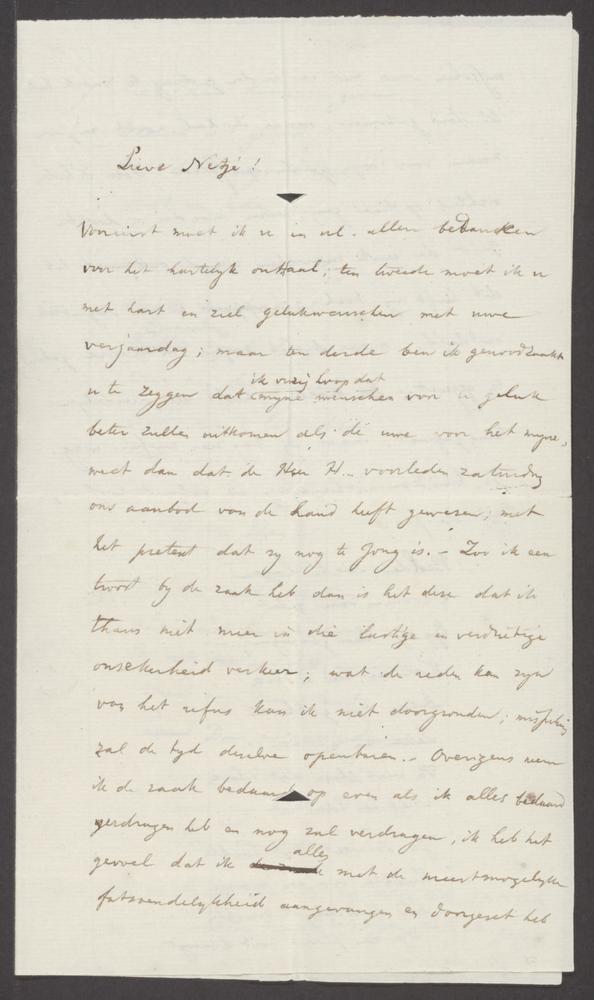 Lieve Netje!
Vooreerst moet ik u en ul. allen bedanken
voor het hartelyk onthaal; ten tweede moet ik u
met hart en ziel gelukwenschen met uwe
verjaardag; maar ten derde ben ik genoodzaakt
ik vry loop dat
u te zeggen dat myne menschen voor u geluk
beter zullen uitkomen als de uwe voor het myne,
weet dan dat de Heer H.. voorleden zaturdag
ons aanbod van de hand heeft gewesen, met
het pretext dat zy nog te Jong is. - Zoo ik een
troost by de zaak heb dan is het deze dat ik
thans niet meer in die lastige en verdrietige
onsekerheid verkeer; wat de reden kan zyn
van het refus kan ik niet doorgronden; misschien
zal de tyd deselve openbaren. - Overigens neem
ik de zaak bedaard op even als ik alles bedaard
verdragen heb en nog zal verdragen, ik heb het
alles
gevoel dat ik met de meestmogelyke
fatsoendelykheid aangevangen en doorgeset heb